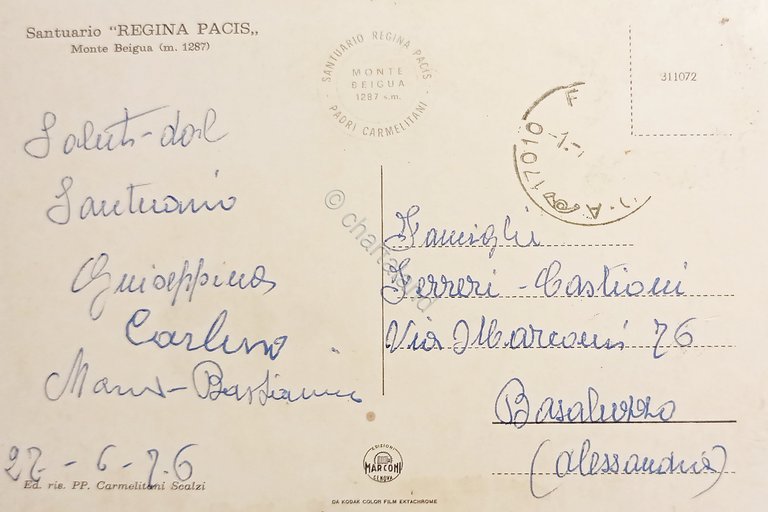 Santuario “REGINA PACIS„
Monte Beigua (m. 1287)
SANTUARIO REGINA PACIS
MONTE
BEIGUA
1287 s.m.
PADRI CARMELITANI
311072
17010
Saluti dal
Santuario
Giuseppina
Carlino
Maria - Bastianin
27 - 6 - 76
Ed. ris. PP. Carmelitani Scalzi
© chartaland
Famiglie
Ferreri - Castioni
Via Marconi 76
Basaluzzo
(Alessandria)
EDIZIONI
MARCONI
GENOVA
DA KODAK COLOR FILM EKTACHROME